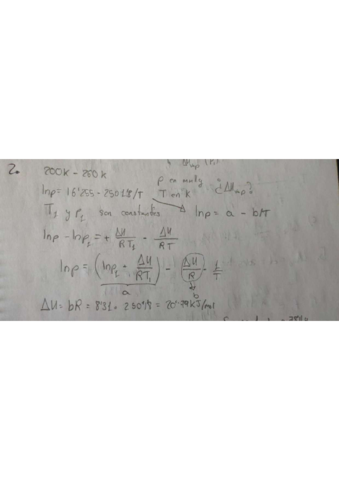 2. 200K - 250K
p en mmHg
T en K ¿ΔUvap?
lnp = 16'255 - 2501'8/T
T₁ y p₁ son constantes lnp = a - b/T
lnp - lnp₁ = + ΔU/RT₁ - ΔU/RT
lnp = (lnp₁ + ΔU/RT₁) - (ΔU/R) · 1/T
a b
ΔU = bR = 8'31 ·